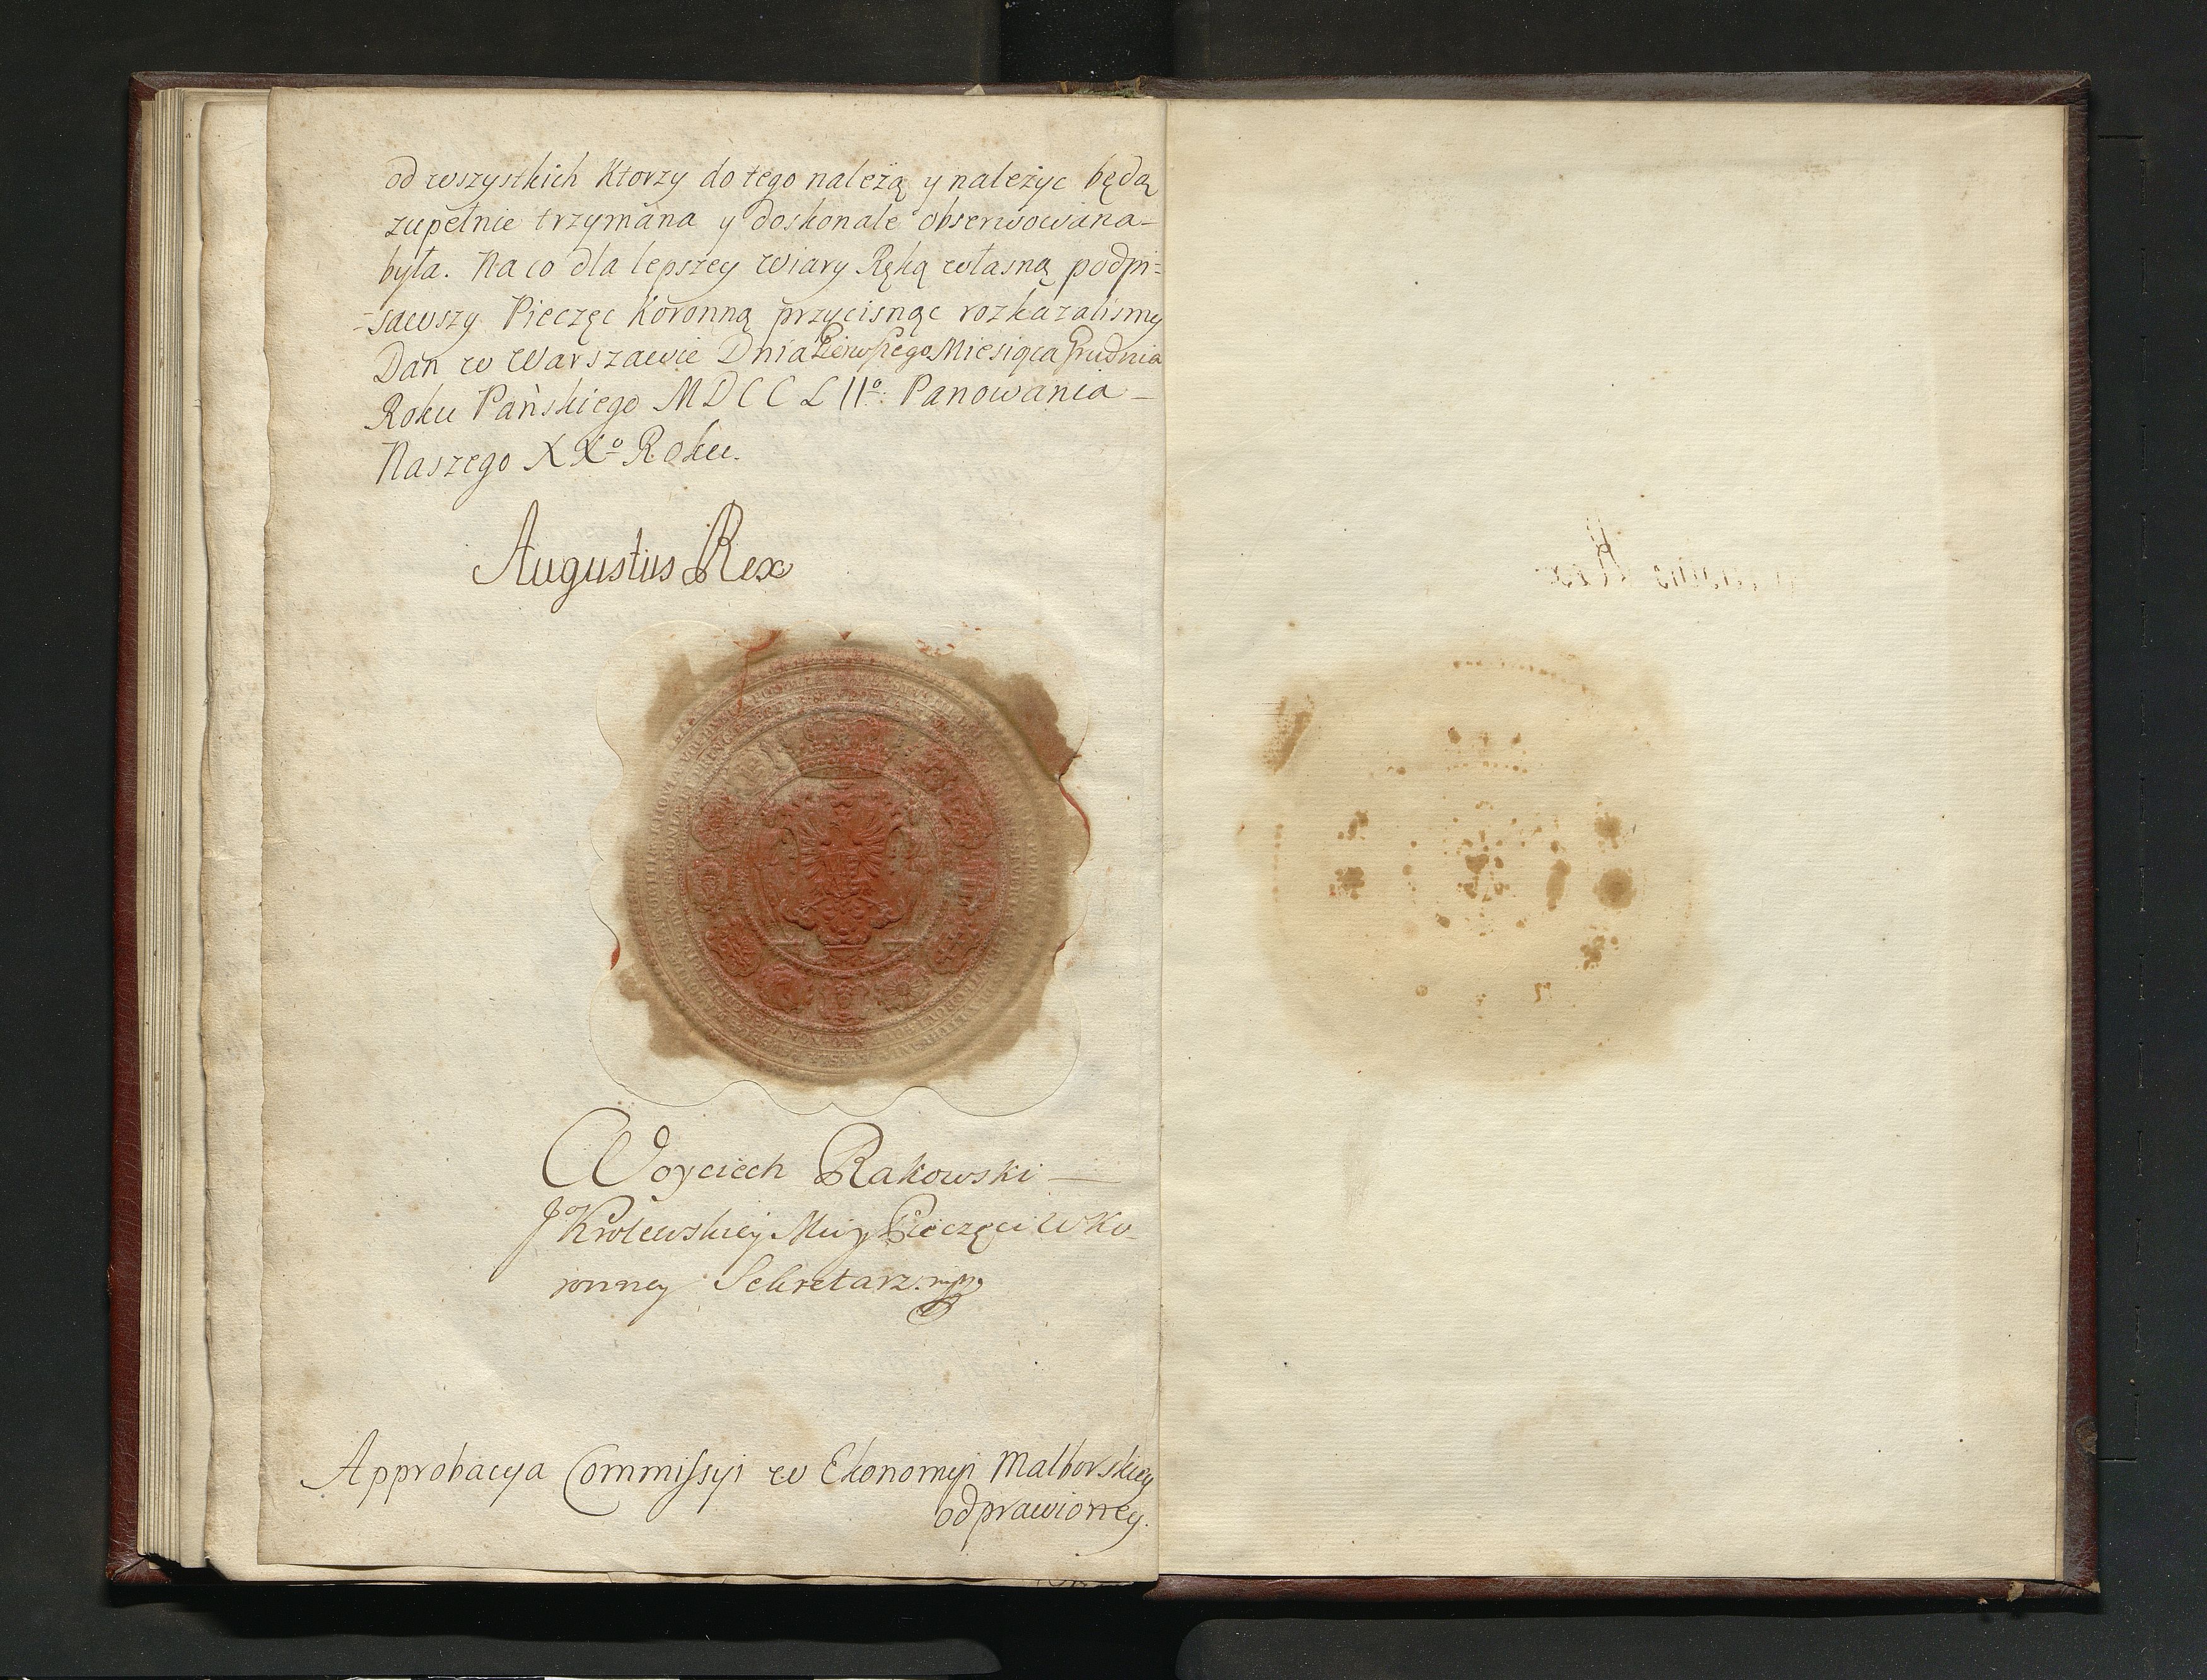 od wszystkich Ktorzy do tego należą y należyc będą
zupełnie trzymana y doskonale obserwowana-
była. Na co dla lepszey wiary Ręką własną podpi=
=sawszy Pieczęc Koronną przycisnąc rozkazalismy
Dan w Warszawie Dnia Pierwszego Miesiąca Grudnia
Roku Pańskiego MDCCLIIº: Panowania -
Naszego XXº Roku.
Augustus Rex
Woyciech Rakowski -
Jº Krolewskiey Mci y Pieczęci W Ko-
ronney Sekretarz. mp
Approbacya Commissyi w Ekonomyi Malborskiey
odprawioney.